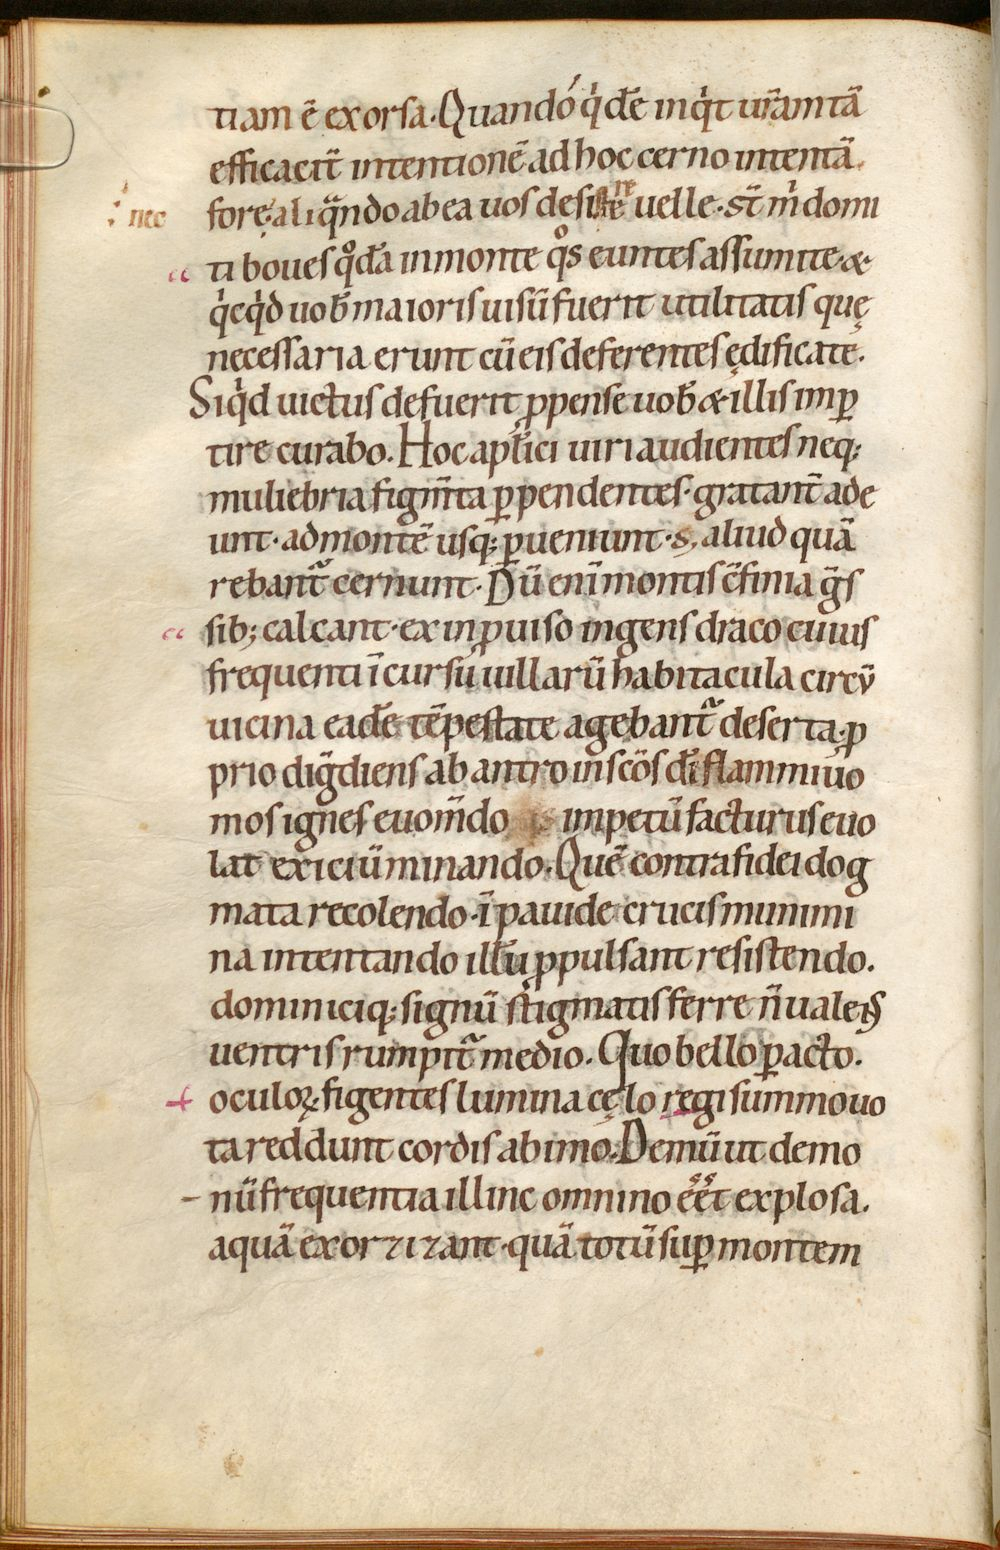 tiam ē exorsa. Quandóq̇dē inq̇t ur̄am tā
efficacit̄ intentionē ad hoc cerno intentā.
: nec forę, aliq̄ndo ab ea uos desistere uelle. st̄ m̊ domi
ti boues qͦdā in monte qͦs euntes assumite. &
q̇cq̇d uob̄ maioris uisū fuerit utilitatis quę
necessaria erunt cū eis deferentes ędificate.
Siq̇d uictus defuerit ꝓpense uob̄ & illis imꝑ
tire curabo. Hoc apl̄ici uiri audientes neq;
muliebria figm̄ta ꝑpendentes. gratant̄ ade
unt. ad montē usq; ꝑueniunt. s; aliud quā
rebant᷑ cernunt. Dū enī montis c̄finia ḡs
sib; calcant. ex inꝓuiso ingens draco cuius
frequenti īcursu uillarū habitacula circū
uicina eadē tēpestate agebant᷑ deserta. ꝓ
prio diḡdiens ab antro in sc̄os dī flammiuo
mos ignes euom̄do impetū facturus euo
lat exiciū minando. Quē contra fidei dog
mata recolendo. īpauide crucis munimi
na intentando illū ꝓpulsant resistendo.
dominiciq; signū stigmatis ferre n̄ ualens
uentris rumpit᷑ medio. Quo bello ꝑacto.
oculoꝝ figentes lumina cęlo regi summo uo
ta reddunt cordis ab imo. Demū ut demo
nū frequentia illinc omnino ēēt explosa.
aquā exorzizant. quā totū suꝑ montem